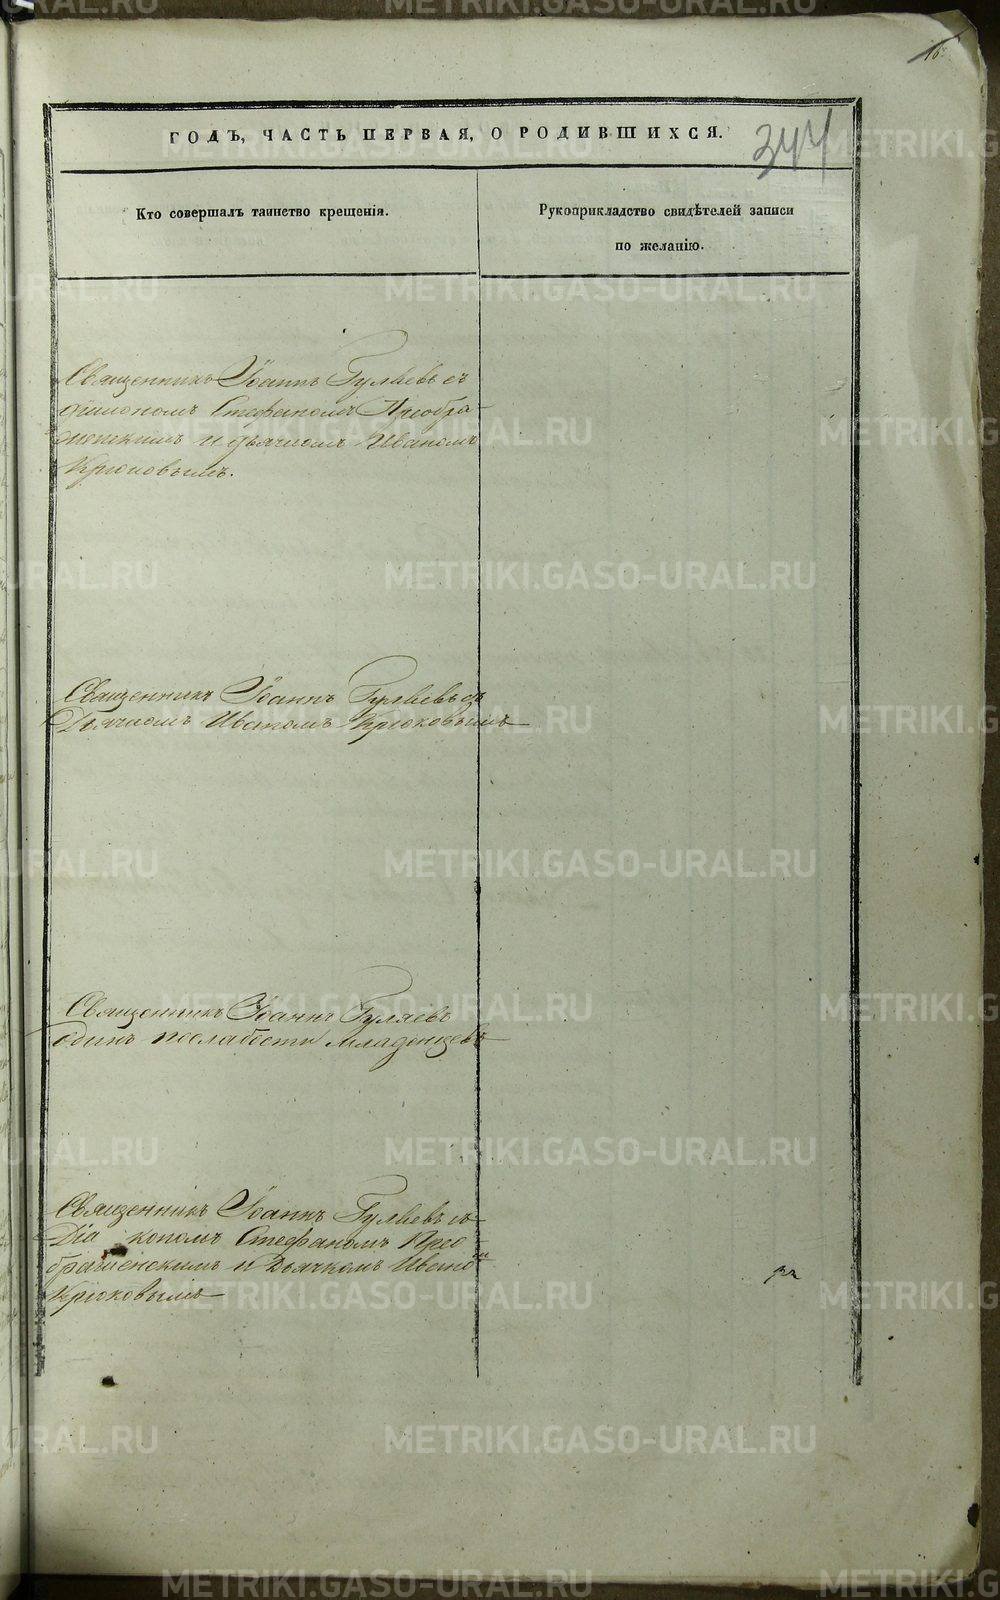 ГОДЪ, ЧАСТЬ ПЕРВАЯ, О РОДИВШИХСЯ.
344
Кто совершалъ таинство крещенія.
Рукоприкладство свидѣтелей записи
по желанію.
Священникъ Іоаннъ Гуляевъ съ
діакономъ Стефаномъ Преобра-
женскимъ и дьячкомъ Иваномъ
Крюковымъ.
Священникъ Іоаннъ Гуляевъ съ
Дьячкомъ Иваномъ Крюковымъ
Священникъ Іоаннъ Гуляевъ
одинъ послабости младенцевъ
Священникъ Іоаннъ Гуляевъ съ
Діакономъ Стефаномъ Прео-
браженскимъ и Дьячкомъ Иваномъ
Крюковымъ
METRIKI.GASO-URAL.RU